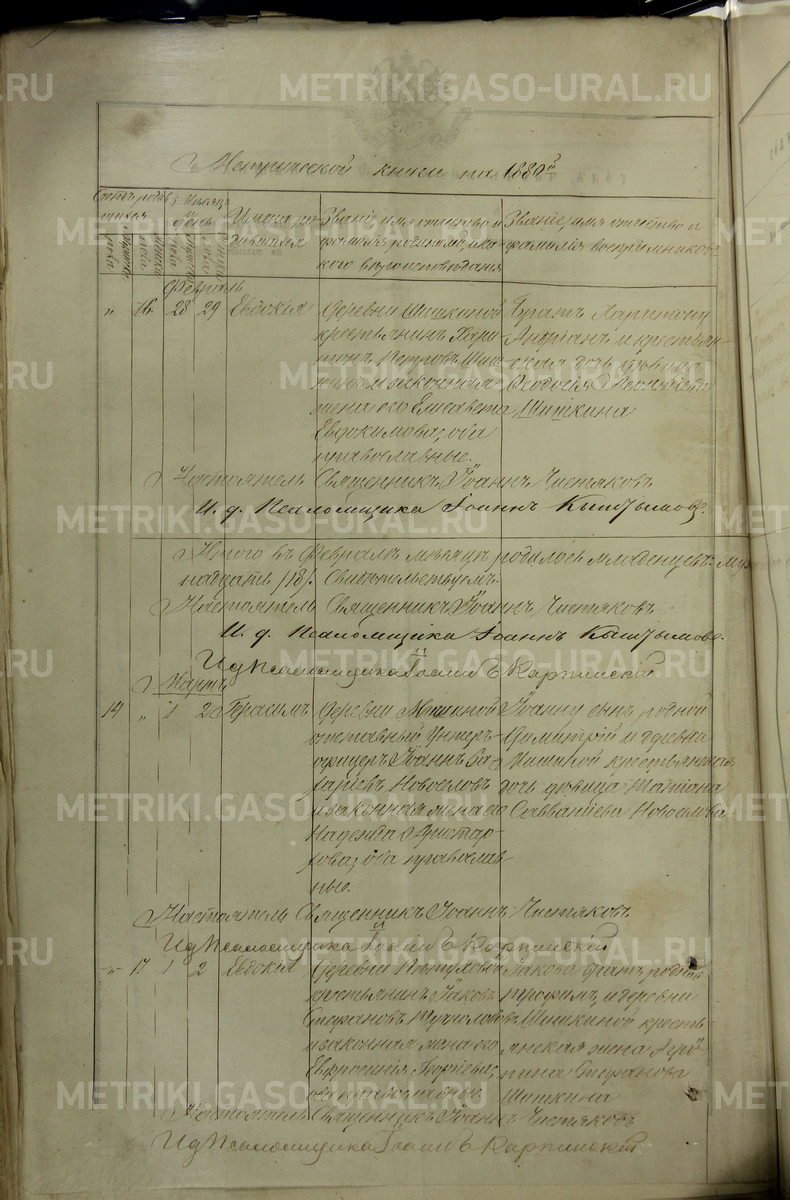 METRIKI.GASO-URAL.RU
Метрической книги на 1880й
Счетъ родившихся
Мѣсяцъ и день
Имена родившихся
Званіе, имя, отчество и фамилія родителей и какого вѣроисповѣданія
Званіе, имя, отчество и фамилія воспріемниковъ
Февраль
" 16. 28 29 Евдокія
Деревни Шишкиной
крестьянинъ Хари-
тонъ Петровъ Шиш-
кинъ и законная
жена его Елисавета
Евдокимова; оба
православные.
Братъ Харитону
Андріанъ и крестьян-
ская дочь дѣвица
Феодосія Леонтіева
Шишкина
Настоятель Священникъ Іоаннъ Чистяковъ
И. д. Псаломщика Іоаннъ Кыштымовъ.
Итого въ Февралѣ мѣсяцѣ родилось младенцевъ: муж
надцать /18/. Свидѣтельствуемъ:
Настоятель Священникъ Іоаннъ Чистяковъ
И. д. Псаломщика Іоаннъ Кыштымовъ.
И д Псаломщика Іоаннъ Карпинскій
Мартъ
14 " 1 2 Герасимъ
Деревни
отставный Унтеръ-
офицеръ Іоаннъ За-
харіевъ Новоселовъ
и законная жена его
Надежда Аристар-
хова; оба православ-
ные.
Іоанну сынъ родной
Димитрій и деревни
крестьянская
дочь дѣвица
Савватіева Новоселова
Настоятель Священникъ Іоаннъ Чистяковъ
И д Псаломщика Іоаннъ Карпинскій
" 17 1 2 Евдокія
Деревни
крестьянинъ Іаковъ
Стефановъ
и законная жена его
Евфросинія
оба православные
Іакова братъ родной
Трофимъ, и деревни
Шишкиной кресть-
янская жена Агри-
пина Стефанова
Шишкина
Настоятель Священникъ Іоаннъ Чистяковъ
И д Псаломщика Іоаннъ Карпинскій